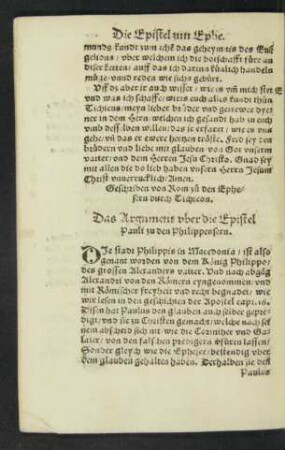 Die Epistel zun Ephe.
munds kundt zum ich das geheymnis des Eua͂
gelions / vber welchen ich die botschafft füre an
diser ketten / auff das ich darin̄ künlich handeln
müge / vnnd reden wie sichs gebürt.
Vff dz aber ir auch wisset / wie es vm̄ mich stet
vnd was ich schaffe / wirts euch alles kundt thůn
Tichicus / meyn lieber brůder vnd getrewer dye
ner in dem Herrn / welchen ich gesandt hab in euch
vnd desselben willen / das ir erfaret / wie es vns
gehe / vn̄ das er ewere hertzen tröste. Frid sey den
brüdern vnd liebe mit glauben von Got vnserm
vatter / vnd dem Herren Jesu Christo. Gnad sey
mit allen die do lieb haben vnsern Herrn Jesum
Christ vnuerrucklich / Amen.
Geschriben von Rom zů den Ephe-
sern durch Tichicon.
Das Argument vber die Epistel
Pauli zu den Philippensern.
DIe stadt Philippis in Macedonia / ist also
genant worden von dem König Philippo /
des grossen Alexanders vatter. Vnd nach abgāg
Alexandri von den Römern eyngenommen / vnd
mit Römischer freyheit vnd recht begnadet / wie
wir lesen in den geschichten der Apostel capi. 16.
Disen hat Paulus den glauben auch selber gepre
digt / vnd sie zu Christen gemacht / welche nach sei
nem abscheid sich nit wie die Corinther vnd Ga
latier / von den falschen predigern v̄füren lassen /
Sonder gleych wie die Epheser / bestendig vber
dem glauben gehalten haben. Derhalben sie den̄
Paulus